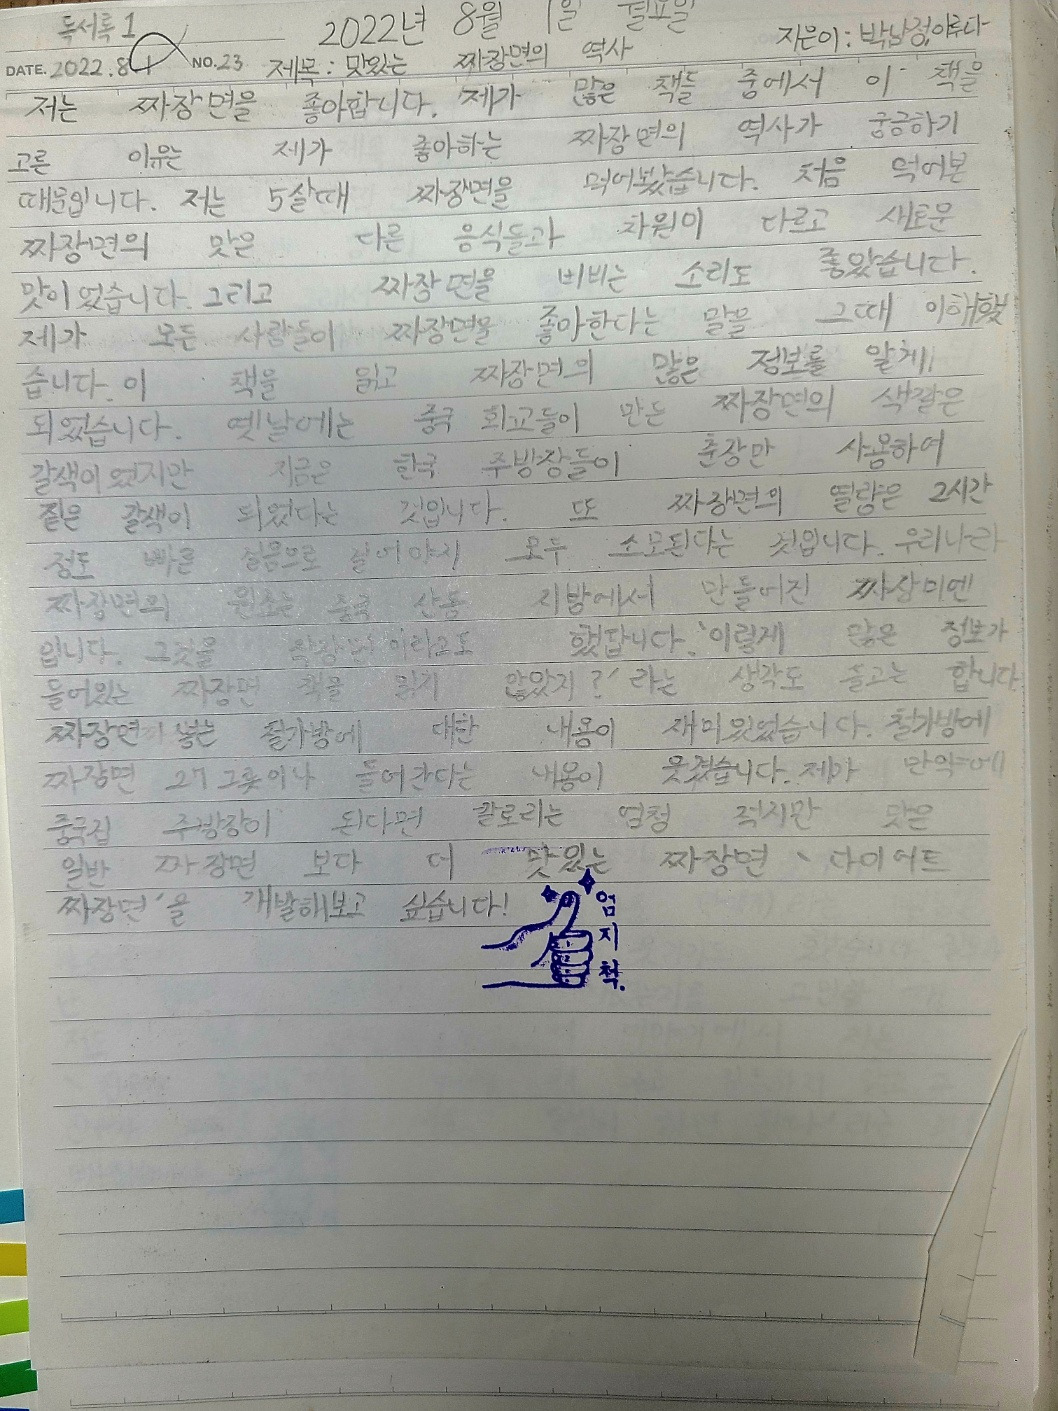 독서록 1
2022년 8월 1일 월요일
지은이: 박남정,이루다
DATE. 2022. 8. 1 NO. 23 제목: 맛있는 짜장면의 역사
저는 짜장면을 좋아합니다. 제가 많은 책들 중에서 이 책을
고른 이유는 제가 좋아하는 짜장면의 역사가 궁금하기
때문입니다. 저는 5살때 짜장면을 먹어봤습니다. 처음 먹어본
짜장면의 맛은 다른 음식들과 차원이 다르고 새로운
맛이었습니다. 그리고 짜장면을 비비는 소리도 좋았습니다.
제가 모든 사람들이 짜장면을 좋아한다는 말을 그때 이해했
습니다. 이 책을 읽고 짜장면의 많은 정보를 알게
되었습니다. 옛날에는 중국 화교들이 만든 짜장면의 색깔은
갈색이었지만 지금은 한국 주방장들이 춘장만 사용하여
짙은 갈색이 되었다는 것입니다. 또 짜장면의 열량은 2시간
정도 빠른 걸음으로 걸어야지 모두 소모된다는 것입니다. 우리나라
짜장면의 원조는 중국 산동 지방에서 만들어진 짜상미엔
입니다. 그것을 작장면 이라고도 했답니다. '이렇게 많은 정보가
들어있는 짜장면 책을 읽지 않았지?' 라는 생각도 들고는 합니다.
짜장면 넣는 철가방에 대한 내용이 재미있었습니다. 철가방에
짜장면 27그릇이나 들어간다는 내용이 웃겼습니다. 제가 만약에
중국집 주방장이 된다면 칼로리는 엄청 적지만 맛은
일반 짜장면 보다 더 맛있는 짜장면 '다이어트
짜장면'을 개발해보고 싶습니다!
엄
지
척.